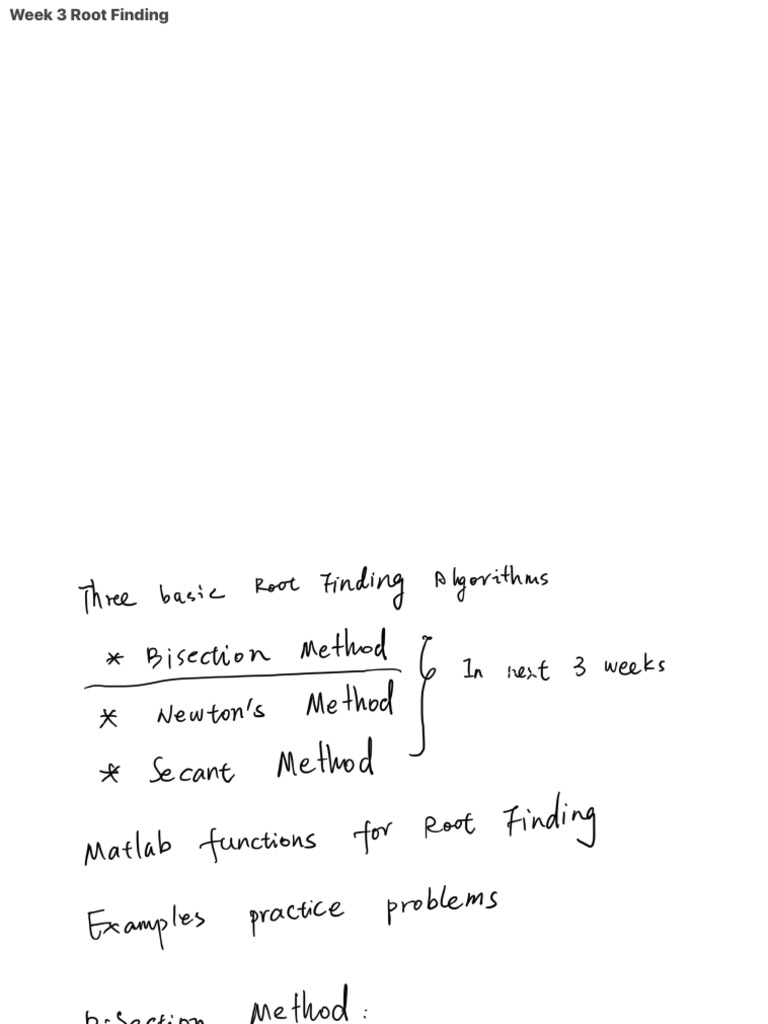 Week 3 Root Finding
Three basic Root Finding Algorithms
* Bisection Method
In next 3 weeks
* Newton's Method
* Secant Method
Matlab functions for Root Finding
Examples practice problems
Bisection Method: